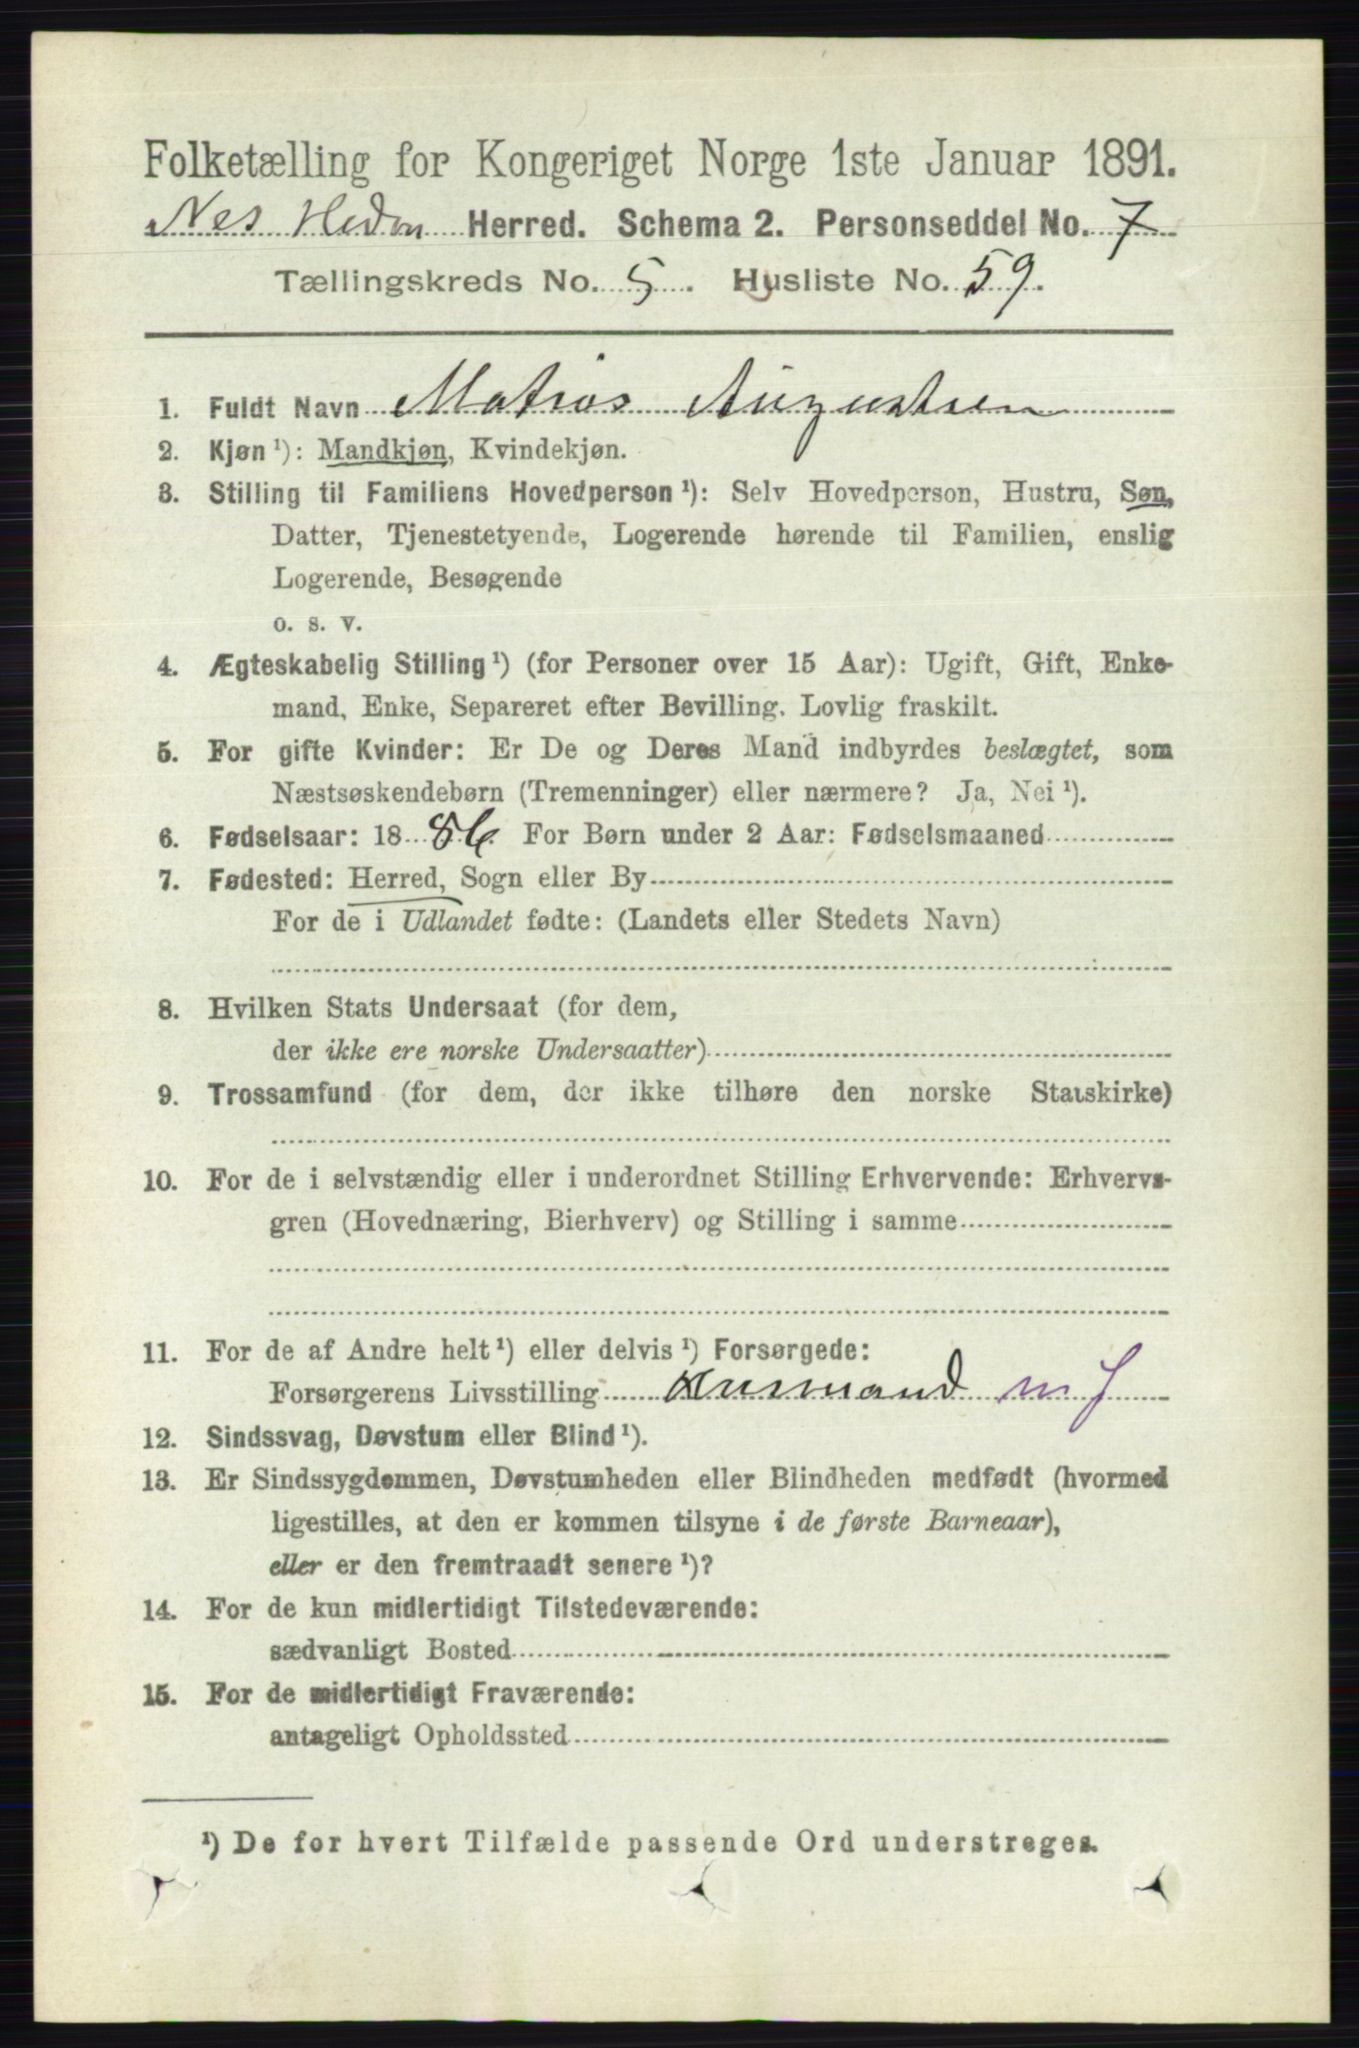 Folketælling for Kongeriget Norge 1ste Januar 1891.
Nes Hedm Herred. Schema 2. Personseddel No. 7
Tællingskreds No. 5. Husliste No. 59.
1. Fuldt Navn Matias Augustsen
2. Kjøn ¹): Mandkjøn, Kvindekjøn.
3. Stilling til Familiens Hovedperson ¹): Selv Hovedperson, Hustru, Søn,
Datter, Tjenestetyende, Logerende hørende til Familien, enslig
Logerende, Besøgende
o. s. v.
4. Ægteskabelig Stilling ¹) (for Personer over 15 Aar): Ugift, Gift, Enke-
mand, Enke, Separeret efter Bevilling. Lovlig fraskilt.
5. For gifte Kvinder: Er De og Deres Mand indbyrdes beslægtet, som
Næstsøskendebørn (Tremenninger) eller nærmere? Ja, Nei ¹).
6. Fødselsaar: 1886. For Børn under 2 Aar: Fødselsmaaned
7. Fødested: Herred, Sogn eller By
For de i Udlandet fødte: (Landets eller Stedets Navn)
8. Hvilken Stats Undersaat (for dem,
der ikke ere norske Undersaatter)
9. Trossamfund (for dem, der ikke tilhøre den norske Statskirke)
10. For de i selvstændig eller i underordnet Stilling Erhvervende: Erhvervs-
gren (Hovednæring, Bierhverv) og Stilling i samme
11. For de af Andre helt ¹) eller delvis ¹) Forsørgede:
Forsørgerens Livsstilling Husmand m J
12. Sindssvag, Døvstum eller Blind ¹).
13. Er Sindssygdommen, Døvstumheden eller Blindheden medfødt (hvormed
ligestilles, at den er kommen tilsyne i de første Barneaar),
eller er den fremtraadt senere ¹)?
14. For de kun midlertidigt Tilstedeværende:
sædvanligt Bosted
15. For de midlertidigt Fraværende:
antageligt Opholdssted
¹) De for hvert Tilfælde passende Ord understreges.